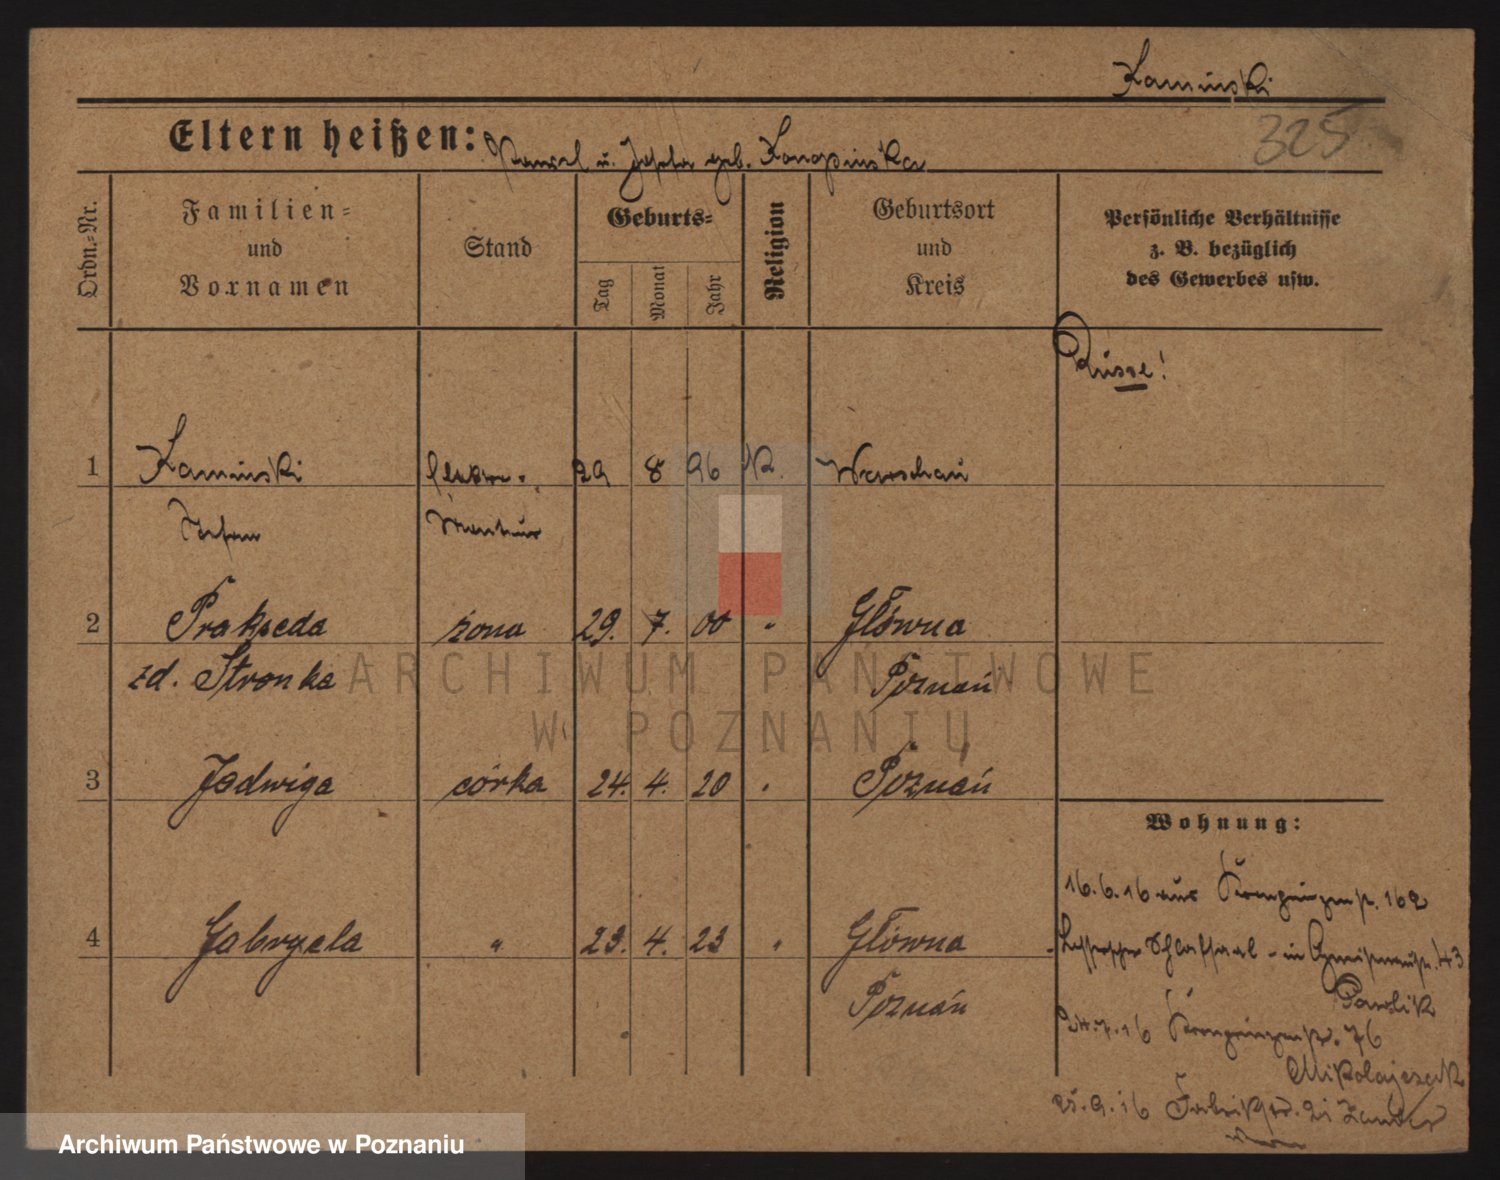 Kaminski
325
Eltern heißen: Pawel u. Josefa geb. Konopinska
Ordn.=Nr.
Familien=
und
Vornamen
Stand
Geburts=
Tag
Monat
Jahr
Religion
Geburtsort
und
Kreis
Persönliche Verhältnisse
z. B. bezüglich
des Gewerbes usw.
Russe!
1 Kaminski Elektro- 29 8 96 K. Warschau
Josef Monteur
2 Prakseda żona 29. 7. 00 " Główna
zd. Stronka Poznań
3 Jadwiga córka 24. 4. 20 " Poznań
Wohnung:
16.6.16 aus Kronprinzenstr. 162
4 Gabryela " 23. 4. 23 " Główna
Schlafsaal - in 43
Poznań
Pawlik
24.7.16 Kronprinzenstr. 76
Mikolajczak
25.9.16 Fabrikstr. 21
ARCHIWUM PAŃSTWOWE
W POZNANIU
Archiwum Państwowe w Poznaniu